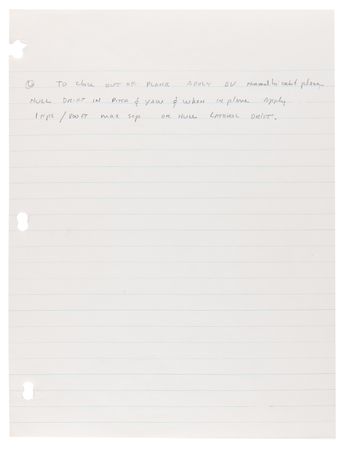 ⑥ TO CLOSE OUT OF PLANE APPLY ΔV normal to orbit plane
NULL DRIFT IN PITCH & YAW & WHEN in plane apply
1 fps / 100 FT max sep OR NULL LATERAL DRIFT.